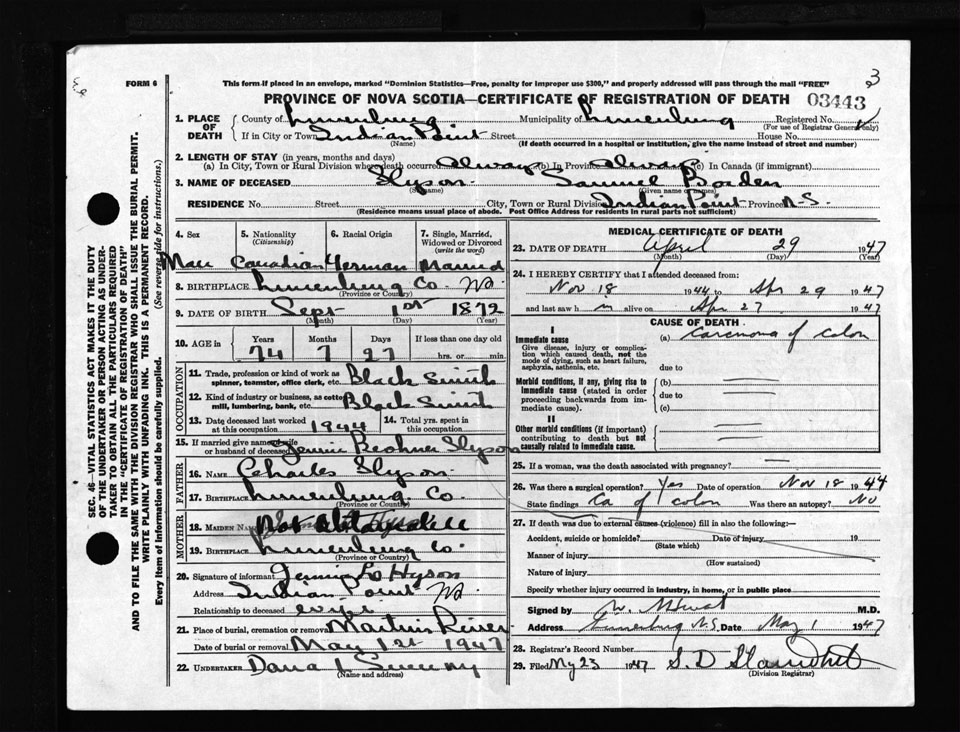 3
FORM 6
This form if placed in an envelope, marked "Dominion Statistics—Free, penalty for improper use $300," and properly addressed will pass through the mail "FREE"
PROVINCE OF NOVA SCOTIA—CERTIFICATE OF REGISTRATION OF DEATH 03443
1. PLACE OF DEATH County of Lunenburg Municipality of Lunenburg Registered No.
(For use of Registrar General only)
If in City or Town Indian Point Street House No.
(Name) (If death occurred in a hospital or institution, give the name instead of street and number)
2. LENGTH OF STAY (in years, months and days)
(a) In City, Town or Rural Division where death occurred always (b) In Province always (c) In Canada (if immigrant)
3. NAME OF DECEASED Hyson Samuel Borden
(Surname) (Given name or names)
RESIDENCE No. Street City, Town or Rural Division Indian Point Province N-S.
(Residence means usual place of abode. Post Office Address for residents in rural parts not sufficient)
4. Sex 5. Nationality (Citizenship) 6. Racial Origin 7. Single, Married, Widowed or Divorced (write the word)
Male Canadian German Married
8. BIRTHPLACE Lunenburg Co. NS
(Province or Country)
9. DATE OF BIRTH Sept 1st 1872
(Month) (Day) (Year)
10. AGE in Years Months Days If less than one day old
74 7 27 hrs. or min.
OCCUPATION
11. Trade, profession or kind of work as spinner, teamster, office clerk, etc. Black Smith
12. Kind of industry or business, as cotton mill, lumbering, bank, etc. Black Smith
13. Date deceased last worked at this occupation 1944 14. Total yrs. spent in this occupation
15. If married give name of wife or husband of deceased Jennie Hyson
FATHER
16. NAME Charles Hyson
17. BIRTHPLACE Lunenburg Co
(Province or Country)
MOTHER
18. MAIDEN NAME
19. BIRTHPLACE Lunenburg Co.
(Province or Country)
20. Signature of informant Jennie L Hyson
Address Indian Point NS
Relationship to deceased wife
21. Place of burial, cremation or removal Martins River
Date of burial or removal May 1st 1947
22. UNDERTAKER Dana L Sweeny
(Name and address)
MEDICAL CERTIFICATE OF DEATH
23. DATE OF DEATH April 29 1947
(Month) (Day) (Year)
24. I HEREBY CERTIFY that I attended deceased from:
Nov 18 1944 to Apr 29 1947
and last saw h im alive on Apr 27 1947
CAUSE OF DEATH
I
Immediate cause
Give disease, injury or complication which caused death, not the mode of dying, such as heart failure, asphyxia, asthenia, etc.
(a) Carcinoma of Colon
due to
Morbid conditions, if any, giving rise to immediate cause (stated in order proceeding backwards from immediate cause).
(b)
due to
(c)
II
Other morbid conditions (if important) contributing to death but not causally related to immediate cause.
25. If a woman, was the death associated with pregnancy?
26. Was there a surgical operation? Yes Date of operation Nov 18 1944
State findings Ca of Colon Was there an autopsy? No
27. If death was due to external causes (violence) fill in also the following:—
Accident, suicide or homicide? Date of injury 19
(State which)
Manner of injury
(How sustained)
Nature of injury
Specify whether injury occurred in industry, in home, or in public place
Signed by M.D.
Address Lunenburg N.S. Date May 1 1947
28. Registrar's Record Number
29. Filed My 23 1947 S. D
(Division Registrar)
SEC. 46—VITAL STATISTICS ACT MAKES IT THE DUTY
OF THE UNDERTAKER OR PERSON ACTING AS UNDERTAKER
TO OBTAIN ALL THE PARTICULARS REQUIRED
IN THE "CERTIFICATE OF REGISTRATION OF DEATH"
AND TO FILE THE SAME WITH THE DIVISION REGISTRAR WHO SHALL ISSUE THE BURIAL PERMIT.
WRITE PLAINLY WITH UNFADING INK. THIS IS A PERMANENT RECORD.
Every item of Information should be carefully supplied. (See reverse side for instructions.)